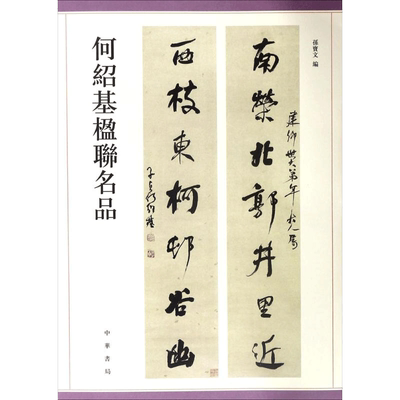 何紹基楹聯名品
孫寶文 編
南榮北郭井里近
西枝東柯邨谷幽
子貞何紹基
中華書局